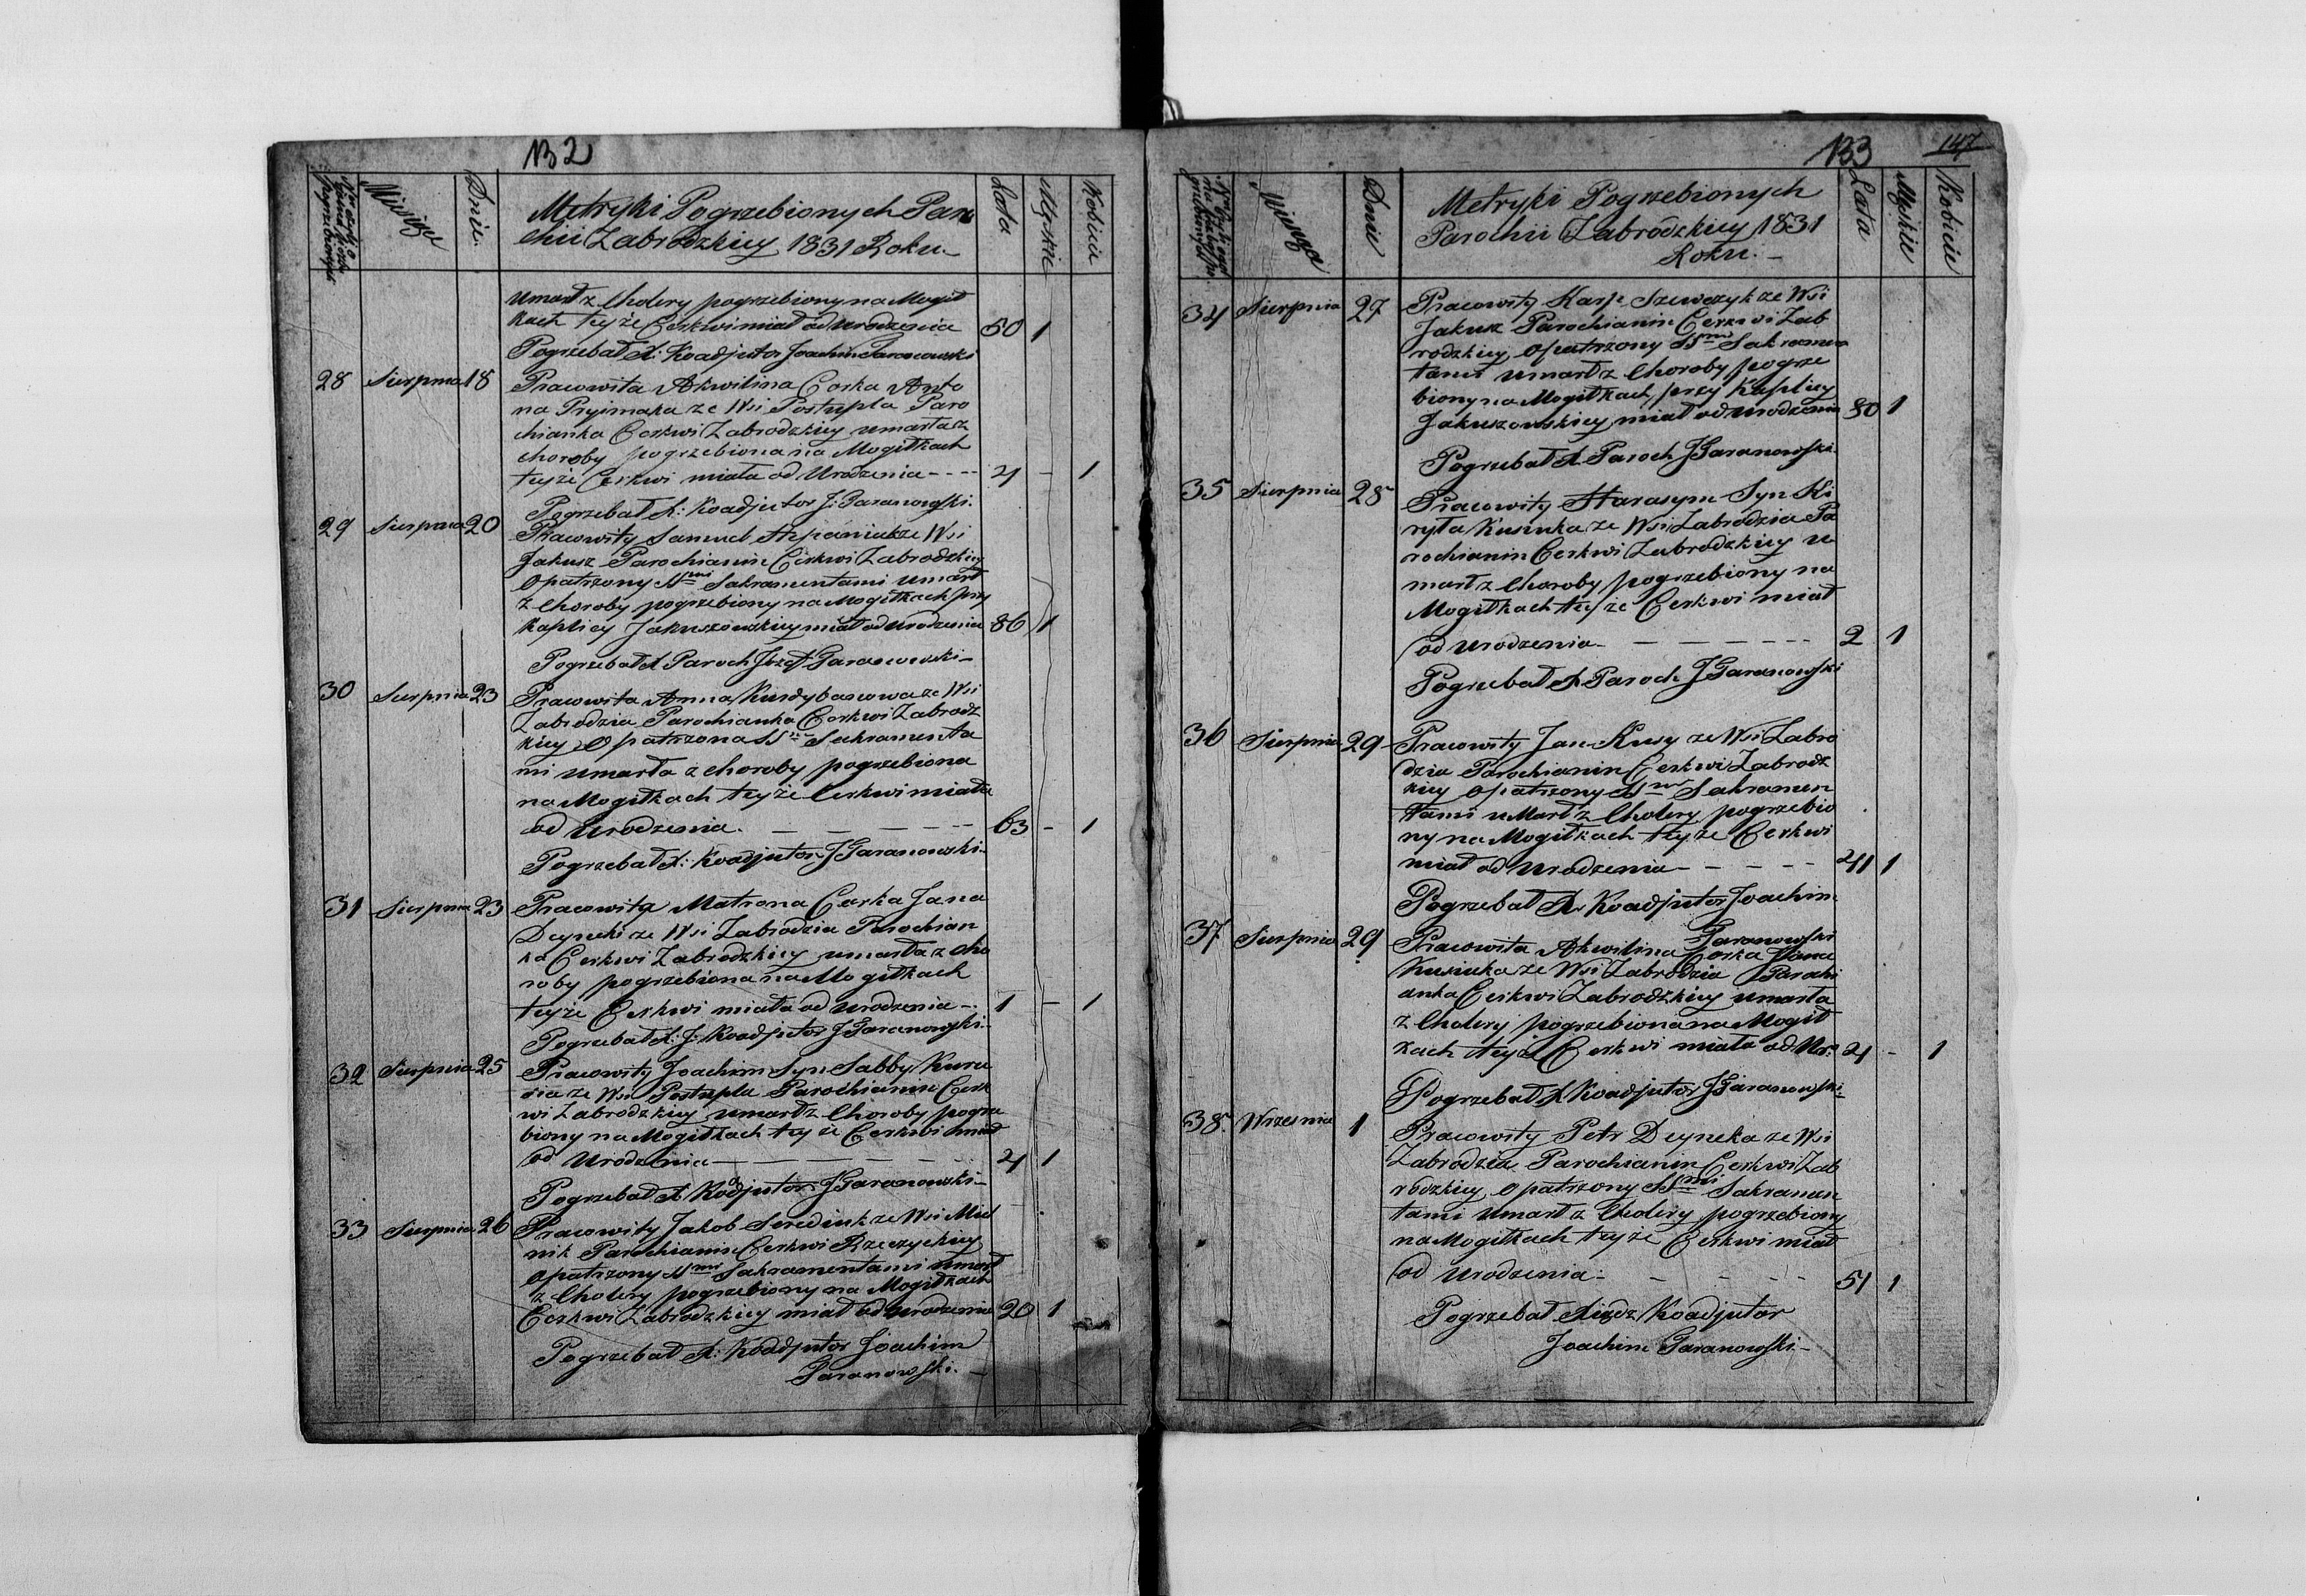 132
Miesiące
Dnie.
Metryki Pogrzebionych Paro
chii Zabrodzkiey 1831 Roku.
Lata
Męskie
Kobiece
umarł z Cholery pogrzebiony na Mogił
kach teyże Cerkwi miał od Urodzenia 50 1
Pogrzebał X: Koadjutor Joachim Taranowski
28 Sierpnia 18 Pracowita Akwilina Corka Anto
na Pryimaka ze Wsi Postupla Paro
chianka Cerkwi Zabrodzkiey umarła z
choroby pogrzebiona na Mogiłkach
teyże Cerkwi miała od Urodzenia - - - 4 - 1
Pogrzebał X: Koadjutor J: Taranowski.
29 Sierpnia 20 Pracowity Samuel Stepaniuk ze Wsi
Jakusz Parochianin Cerkwi Zabrodzkiey
Opatrzony SSmi Sakramentami umarł
z Choroby pogrzebiony na Mogiłkach przy
Kaplicy Jakuszowskiey miał od Urodzenia 86 1
Pogrzebał X Paroch Józef Taranowski
30 Sierpnia 23 Pracowita Anna Kurdybanowa ze Wsi
Zabrodzia Parochianka Cerkwi Zabrodz
kiey Opatrzona SS Sakramenta
mi umarła z choroby pogrzebiona
na Mogiłkach teyże Cerkwi miała
od Urodzenia. - - - - - 63 - 1
Pogrzebał X: Koadjutor J Taranowski
31 Sierpnia 23 Pracowita Matrona Corka Jana
Deyneki ze Wsi Zabrodzia Parochian
ka Cerkwi Zabrodzkiey umarła z cho
roby pogrzebiona na Mogiłkach
teyże Cerkwi miała od Urodzenia - 1 - 1
Pogrzebał X: J: Koadjutor J Taranowski.
32 Sierpnia 25 Pracowity Joachim Syn Sabby
ze Wsi Postupla Parochianin Cerk
wi Zabrodzkiey umarł z Choroby pogrze
biony na Mogiłkach teyże Cerkwi miał
od Urodzenia - - - - - 4 1
Pogrzebał X Koadjutor J Taranowski
33 Sierpnia 26 Pracowity Jakob Serediuk ze Wsi Miel
nik Parochianin Cerkwi Rzeczyckiey
Opatrzony SSmi Sakramentami umarł
z Cholery pogrzebiony na Mogiłkach
Cerkwi Zabrodzkiey miał od Urodzenia 20 1
Pogrzebał X: Koadjutor Joachim
Taranowski.
133
147
Miesiące
Dnie
Metryki Pogrzebionych
Parochii Zabrodzkiey 1831
Roku.
Lata
Męskie
Kobiece
34 Sierpnia 27 Pracowity Karp Szewczyk ze Wsi
Jakusz Parochianin Cerkwi Zab
rodzkiey Opatrzony SSmi Sakramen
tami umarł z Choroby pogrze
biony na Mogiłkach przy Kaplicy
Jakuszowskiey miał od Urodzenia 80 1
Pogrzebał X Paroch J Taranowski
35 Sierpnia 28 Pracowity Harasym Syn Ki
ryła Kusiuka ze Wsi Zabrodzia Pa
rochianin Cerkwi Zabrodzkiey u
marł z Choroby pogrzebiony na
Mogiłkach teyże Cerkwi miał
od Urodzenia - - - - - 2 1
Pogrzebał X Paroch J Taranowski
36 Sierpnia 29 Pracowity Jan Kusy ze Wsi Zabro
dzia Parochianin Cerkwi Zabrodz
kiey Opatrzony SSmi Sakramen
tami umarł z Cholery pogrzebio
ny na Mogiłkach teyże Cerkwi
miał od Urodzenia - - - - 41 1
Pogrzebał X Koadjutor Joachim
Taranowski
37 Sierpnia 29 Pracowita Akwilina Corka Jana
Kusiuka ze Wsi Zabrodzia Parochi
anka Cerkwi Zabrodzkiey umarła
z Cholery pogrzebiona na Mogił
kach teyże Cerkwi miała od Ur: 4 - 1
Pogrzebał X Koadjutor J Taranowski.
38. Wrzesnia 1 Pracowity Petr Deyneka ze Wsi
Zabrodzia Parochianin Cerkwi Zab
rodzkiey Opatrzony SSmi Sakramen
tami umarł z Cholery pogrzebiony
na Mogiłkach teyże Cerkwi miał
od Urodzenia - - - - - 51 1
Pogrzebał Xiądz Koadjutor
Joachim Taranowski